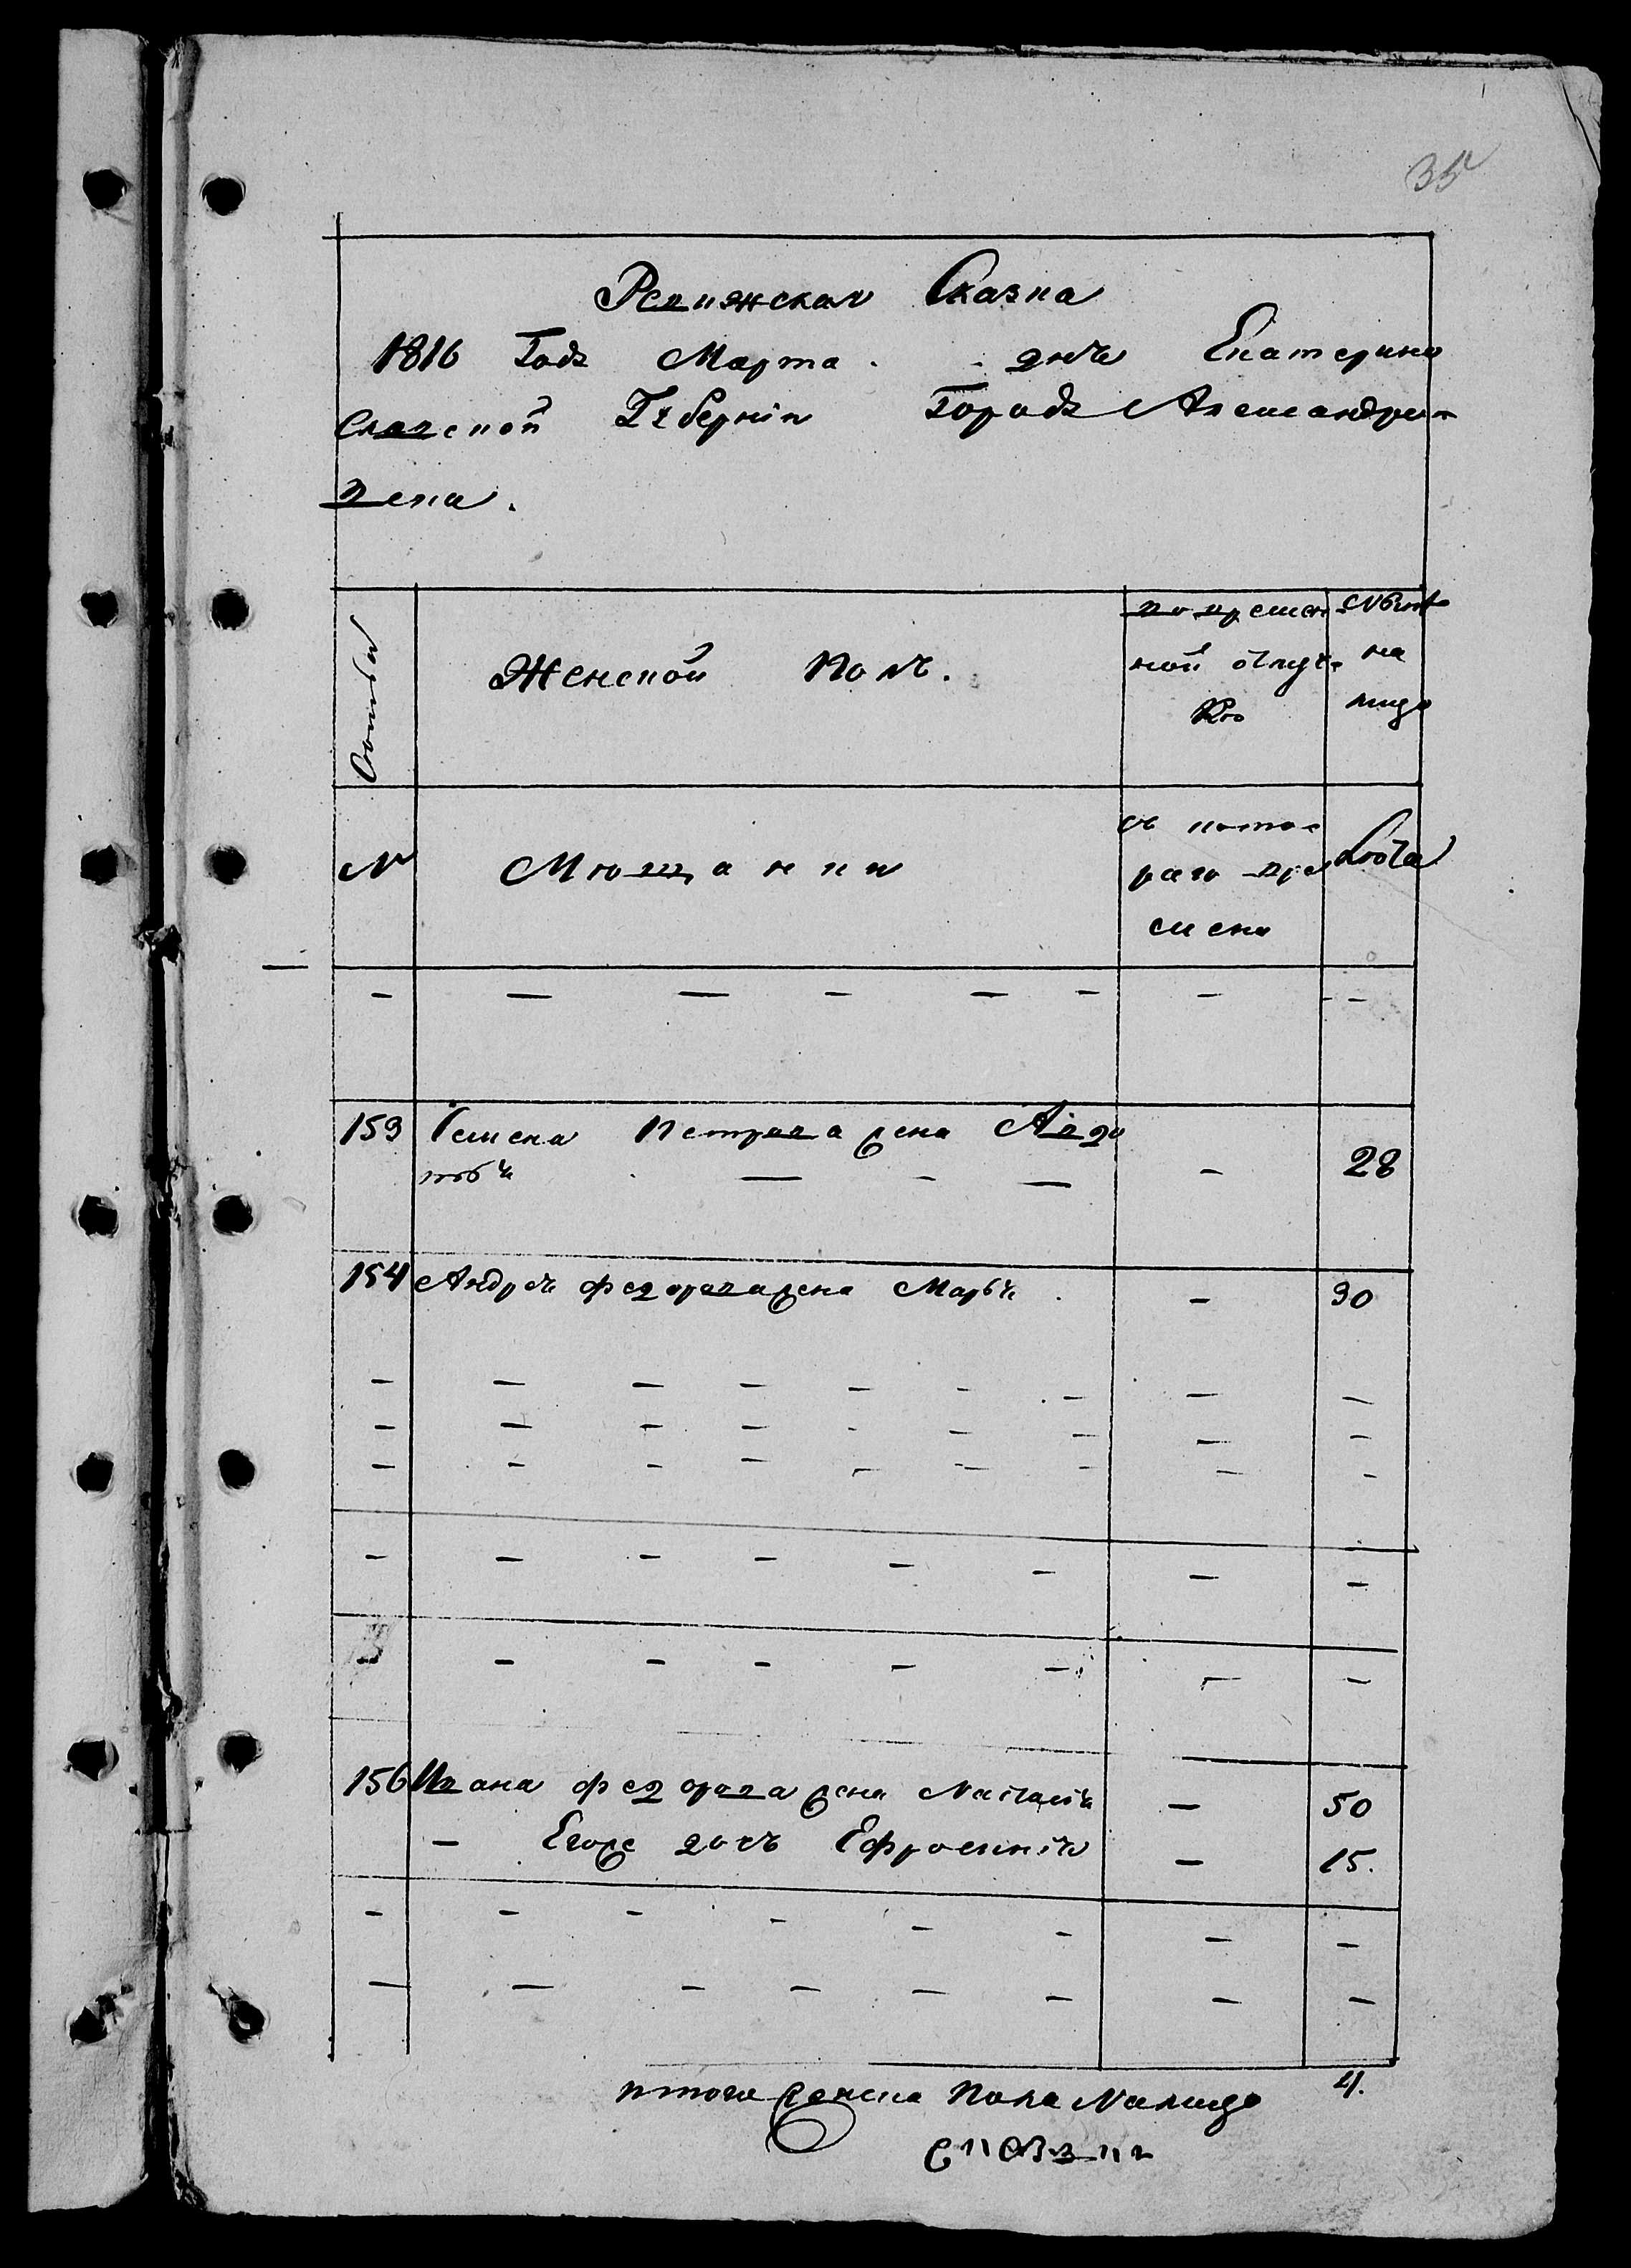 35
Ревижская Сказка
1816 Года Марта дня Екатерино
Славской Губернiи Города Александри
вска.
Семьи
Женской Полъ.
во времен
ной отлуч
ке
Ныне
на
лицо
№
Мющанки
съ кото
раго вре
мени
Лета
153 Семена Петрова жена Авдо
тья 28
154 Андрея Федорова жена Марья 30
156 Ивана Федорова жена Наталiя 50
Егора дочь Ефросинiя 15.
итого женска Пола Налицо 4.